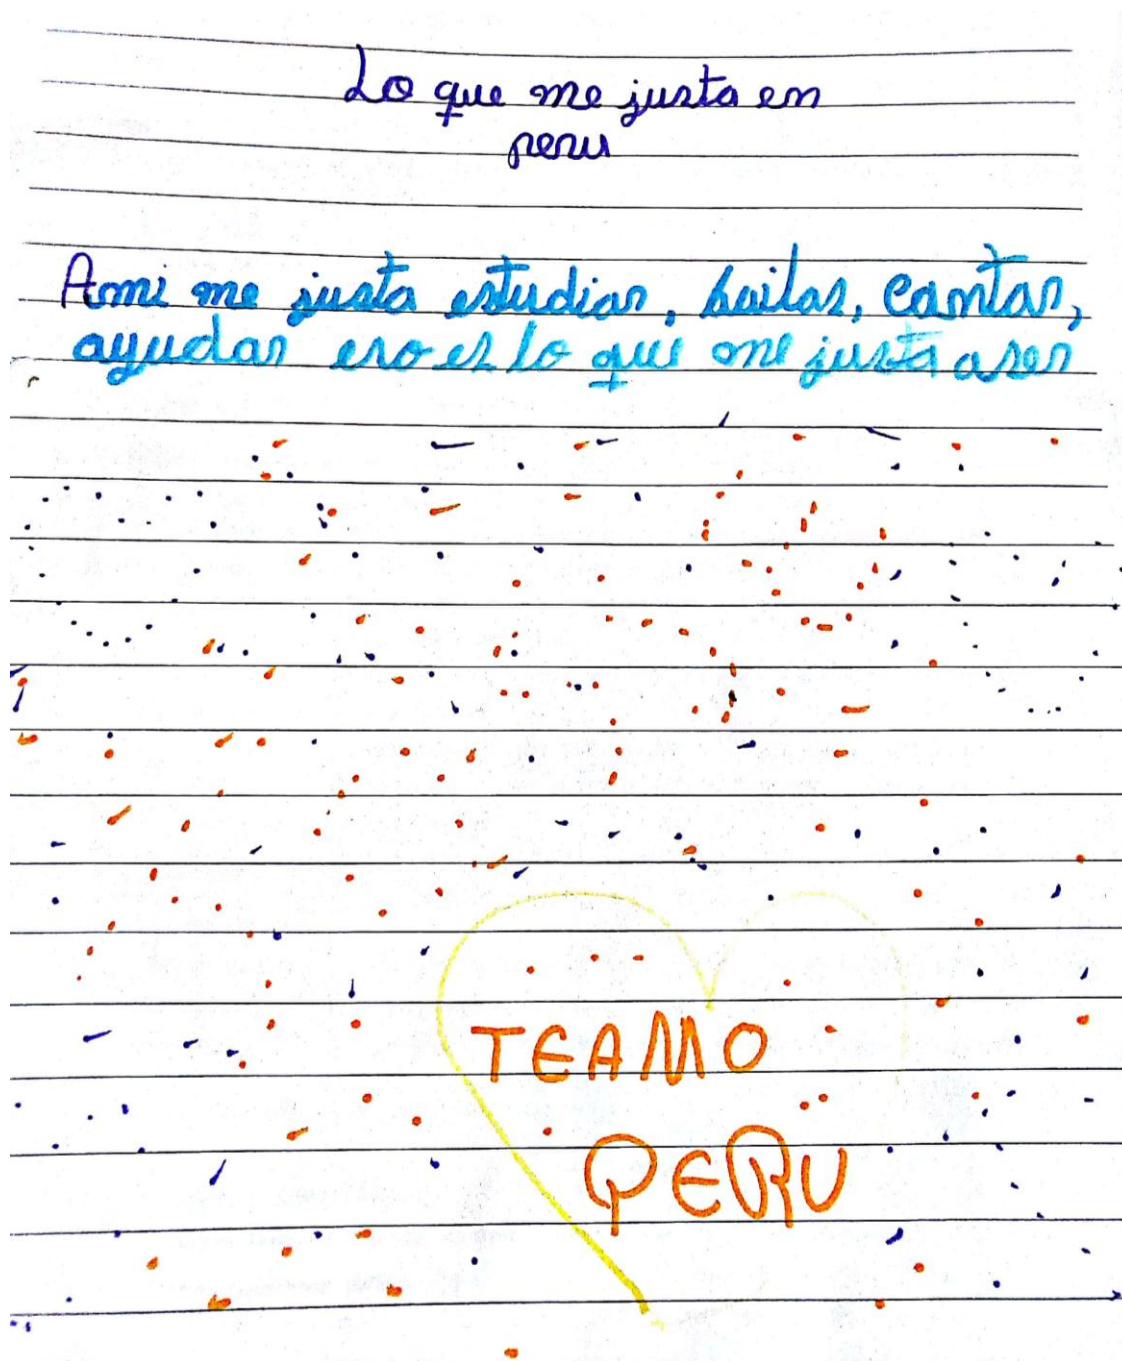 Lo que me justa en
peru
Ami me justa estudiar, bailar, cantar,
ayudar eso es lo que me justa aser
TEAMO
PERU